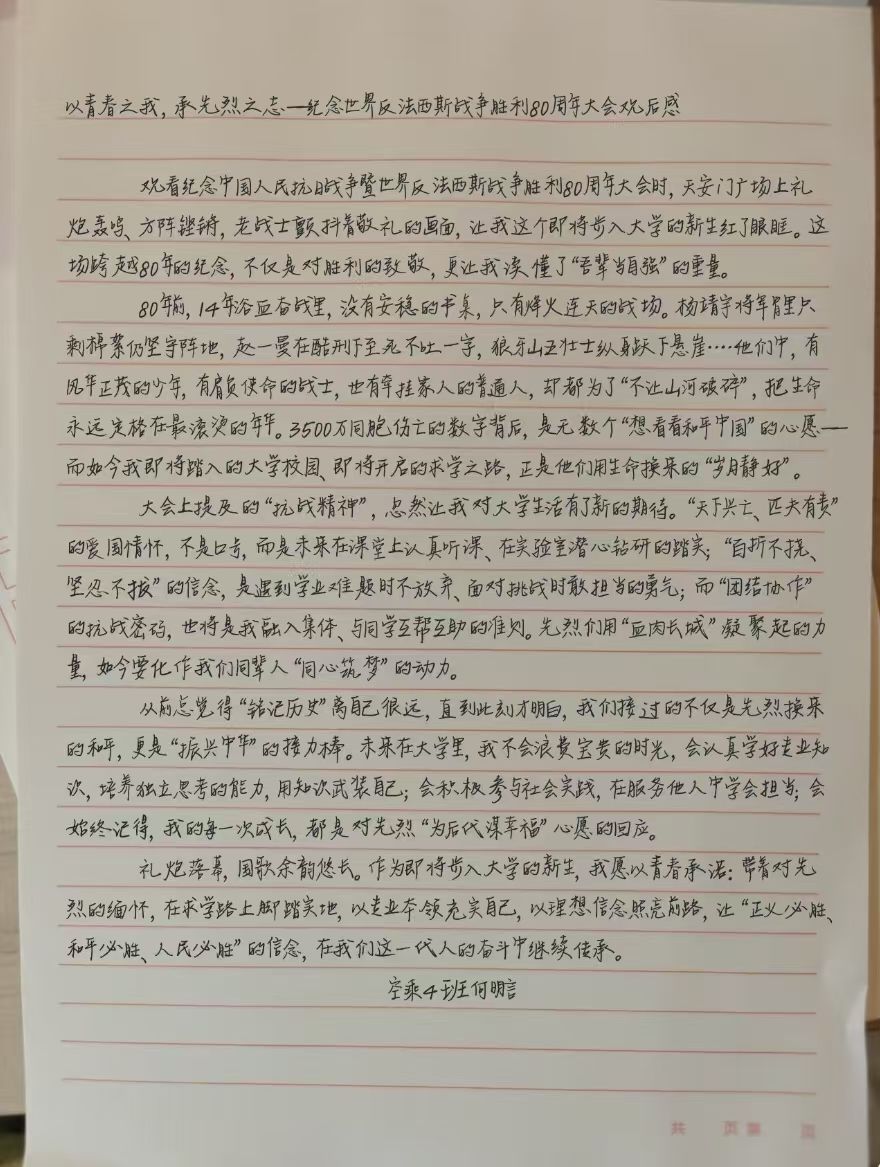 以青春之我，承先烈之志—纪念世界反法西斯战争胜利80周年大会观后感
观看纪念中国人民抗日战争暨世界反法西斯战争胜利80周年大会时，天安门广场上礼
炮轰鸣、方阵铿锵，老战士颤抖着敬礼的画面，让我这个即将步入大学的新生红了眼眶。这
场跨越80年的纪念，不仅是对胜利的致敬，更让我读懂了“吾辈当自强”的重量。
80年前，14年浴血奋战里，没有安稳的书桌，只有烽火连天的战场。杨靖宇将军胃里只
剩棉絮仍坚守阵地，赵一曼在酷刑下至死不吐一字，狼牙山五壮士纵身跃下悬崖····他们中，有
风华正茂的少年，有肩负使命的战士，也有牵挂家人的普通人，却都为了“不让山河破碎”，把生命
永远定格在最滚烫的年华。3500万同胞伤亡的数字背后，是无数个“想看看和平中国”的心愿—
而如今我即将踏入的大学校园、即将开启的求学之路，正是他们用生命换来的“岁月静好”。
大会上提及的“抗战精神”，忽然让我对大学生活有了新的期待。“天下兴亡、匹夫有责”
的爱国情怀，不是口号，而是未来在课堂上认真听课、在实验室潜心钻研的踏实；“百折不挠、
坚忍不拔”的信念，是遇到学业难题时不放弃、面对挑战时敢担当的勇气；而“团结协作”
的抗战密码，也将是我融入集体、与同学互帮互助的准则。先烈们用“血肉长城”凝聚起的力
量，如今要化作我们同辈人“同心筑梦”的动力。
从前总觉得“铭记历史”离自己很远，直到此刻才明白，我们接过的不仅是先烈换来
的和平，更是“振兴中华”的接力棒。未来在大学里，我不会浪费宝贵的时光，会认真学好专业知
识，培养独立思考的能力，用知识武装自己；会积极参与社会实践，在服务他人中学会担当；会
始终记得，我的每一次成长，都是对先烈“为后代谋幸福”心愿的回应。
礼炮落幕，国歌余韵悠长。作为即将步入大学的新生，我愿以青春承诺：带着对先
烈的缅怀，在求学路上脚踏实地，以专业本领充实自己，以理想信念照亮前路，让“正义必胜、
和平必胜、人民必胜”的信念，在我们这一代人的奋斗中继续传承。
空乘4班何明言
共 页 第 页